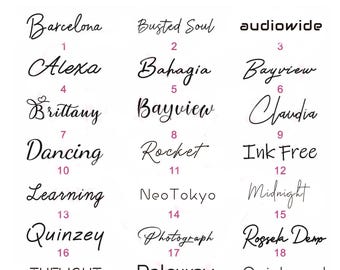 Barcelona Busted Soul audiowide
1 2 3
Alexa Bahagia Bayview
4 5 6
Brittany Bayview Claudia
7 8 9
Dancing Rocket Ink Free
10 11 12
Learning NeoTokyo Midnight
13 14 15
Quinzey Photograph Rossela Demo
16 17 18